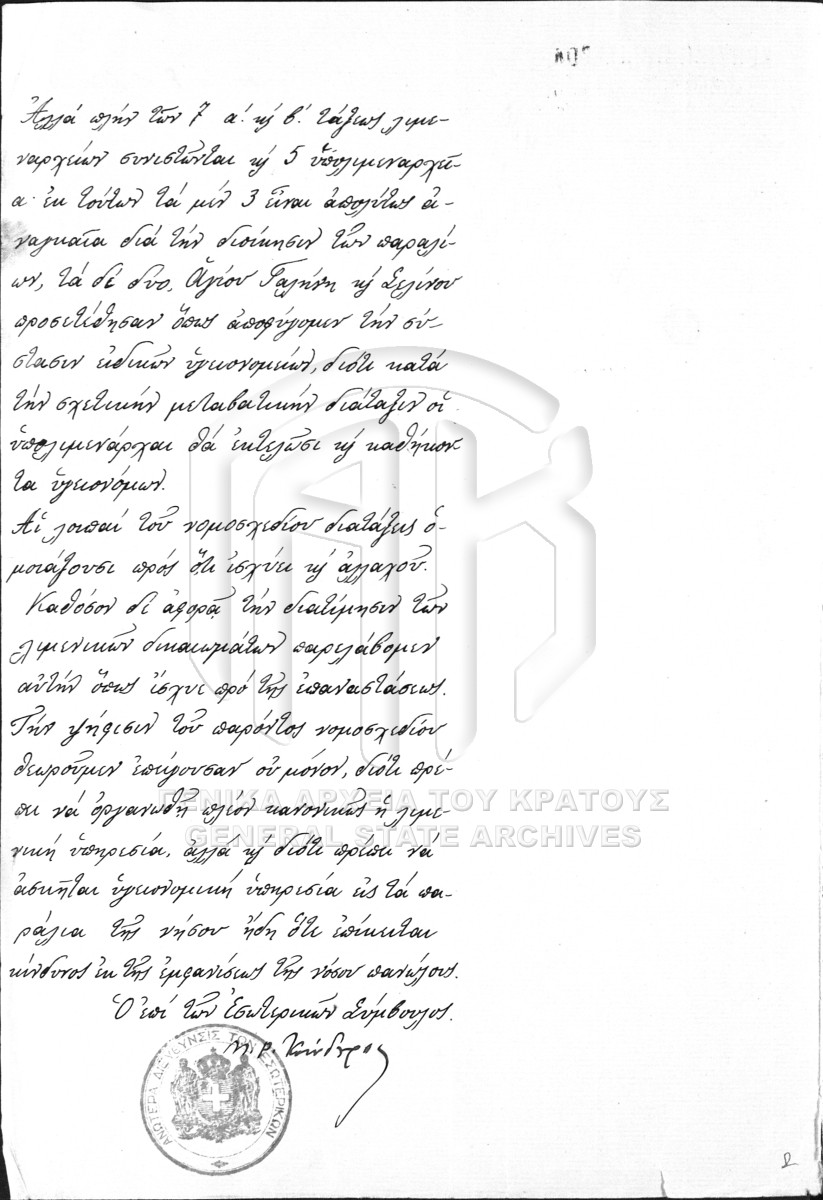 Ἀλλά πλήν τῶν 7 α'. καὶ β'. τάξεως λιμε-
ναρχείων συνιστῶνται καὶ 5 ὑπολιμεναρχεῖ-
α· ἐκ τούτων τά μέν 3 εἶναι ἀπολύτως ἀ-
ναγκαῖα διά τήν διοίκησιν τῶν παραλί-
ων, τά δέ δύο, Ἁγίου Γαλήνη καὶ Σελίνου
προσετέθησαν ὅπως ἀποφύγομεν τήν σύ-
στασιν εἰδικῶν ὑγειονομείων, διότι κατά
τήν σχετικήν μεταβατικήν διάταξιν οἱ
ὑπολιμενάρχαι θά ἐκτελῶσι καὶ καθήκον-
τα ὑγειονόμων.
Αἱ λοιπαί τοῦ νομοσχεδίου διατάξεις ὁ-
μοιάζουσι πρός ὅτι ἰσχύει καὶ ἀλλαχοῦ.
Καθόσον δέ ἀφορᾷ τήν διατίμησιν τῶν
λιμενικῶν δικαιωμάτων παρελάβομεν
αὐτήν ὅπως ἴσχυε πρό τῆς ἐπαναστάσεως.
Τήν ψήφισιν τοῦ παρόντος νομοσχεδίου
θεωροῦμεν ἐπείγουσαν οὐ μόνον, διότι πρέ-
πει νά ὀργανωθῇ πλέον κανονικῶς ἡ λιμε-
νική ὑπηρεσία, ἀλλά καὶ διότι πρέπει νά
ἀσκῆται ὑγειονομική ὑπηρεσία εἰς τά πα-
ράλια τῆς νήσου ἤδη ὅτε ἐπίκειται
κίνδυνος ἐκ τῆς ἐμφανίσεως τῆς νόσου πανώλους.
Ὁ ἐπί τῶν Ἐσωτερικῶν Σύμβουλος.
Μ. Ρ. Κούνδουρος
ΑΝΩΤΕΡΑ ΔΙΕΥΘΥΝΣΙΣ ΤΩΝ ΕΣΩΤΕΡΙΚΩΝ
ΓΕΝΙΚΑ ΑΡΧΕΙΑ ΤΟΥ ΚΡΑΤΟΥΣ
GENERAL STATE ARCHIVES